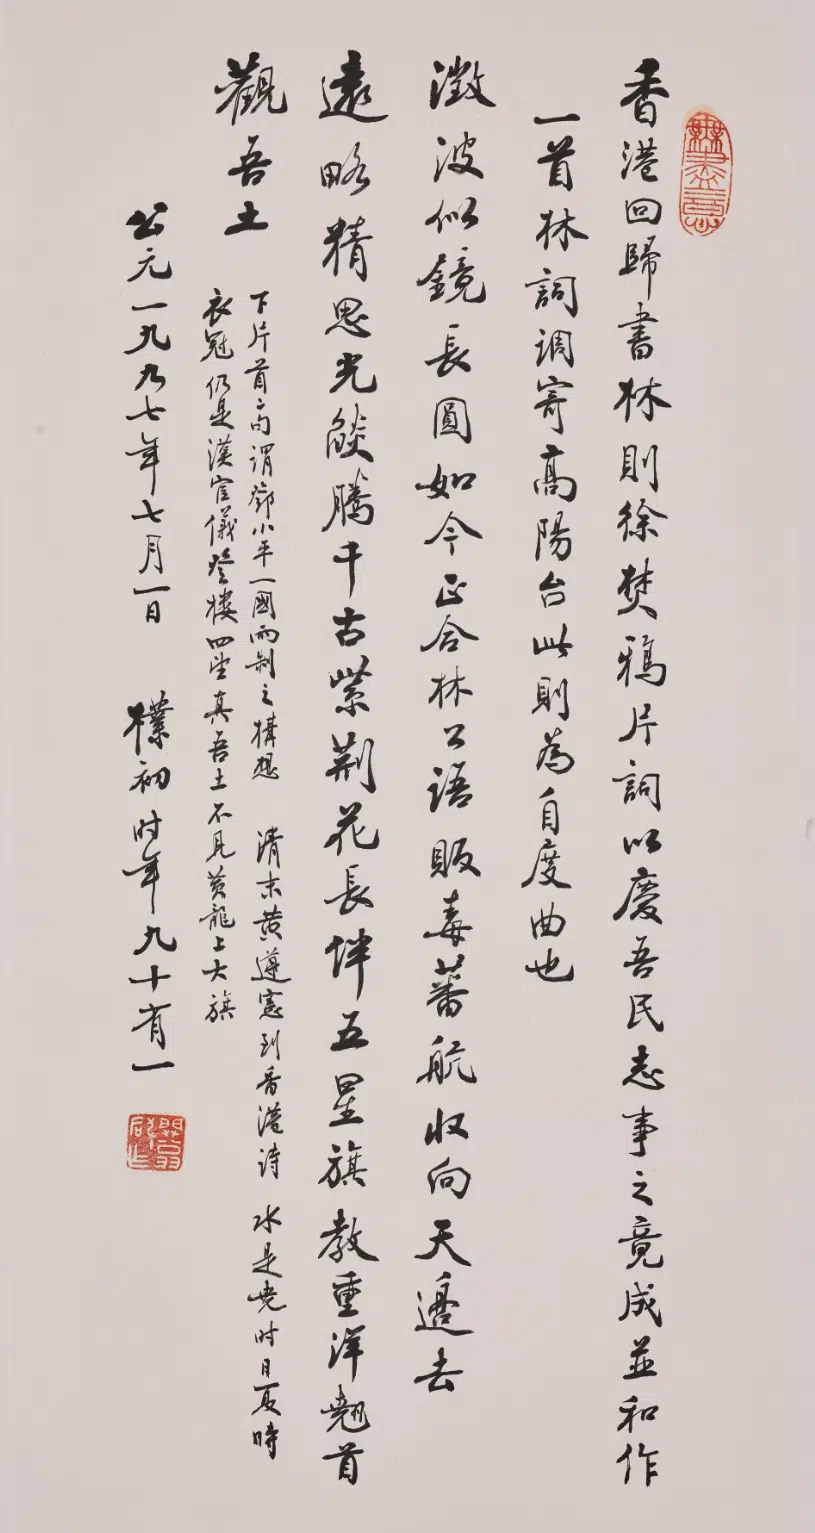 香港回歸書林則徐焚鴉片詞以慶吾民志事之竟成並和作
一首林詞調寄高陽台此則為自度曲也
澂波似鏡長圓如今正合林公語販毒蕃航收向天邊去
遠略精思光燄騰千古紫荆花長伴五星旗教重洋翹首
觀吾土
下片首二句謂鄧小平一國兩制之構想 清末黄遵憲到香港詩 水是堯时日夏時
衣冠仍是漢官儀登樓四望真吾土不見黄龍上大旗
公元一九九七年七月一日 樸初时年九十有一